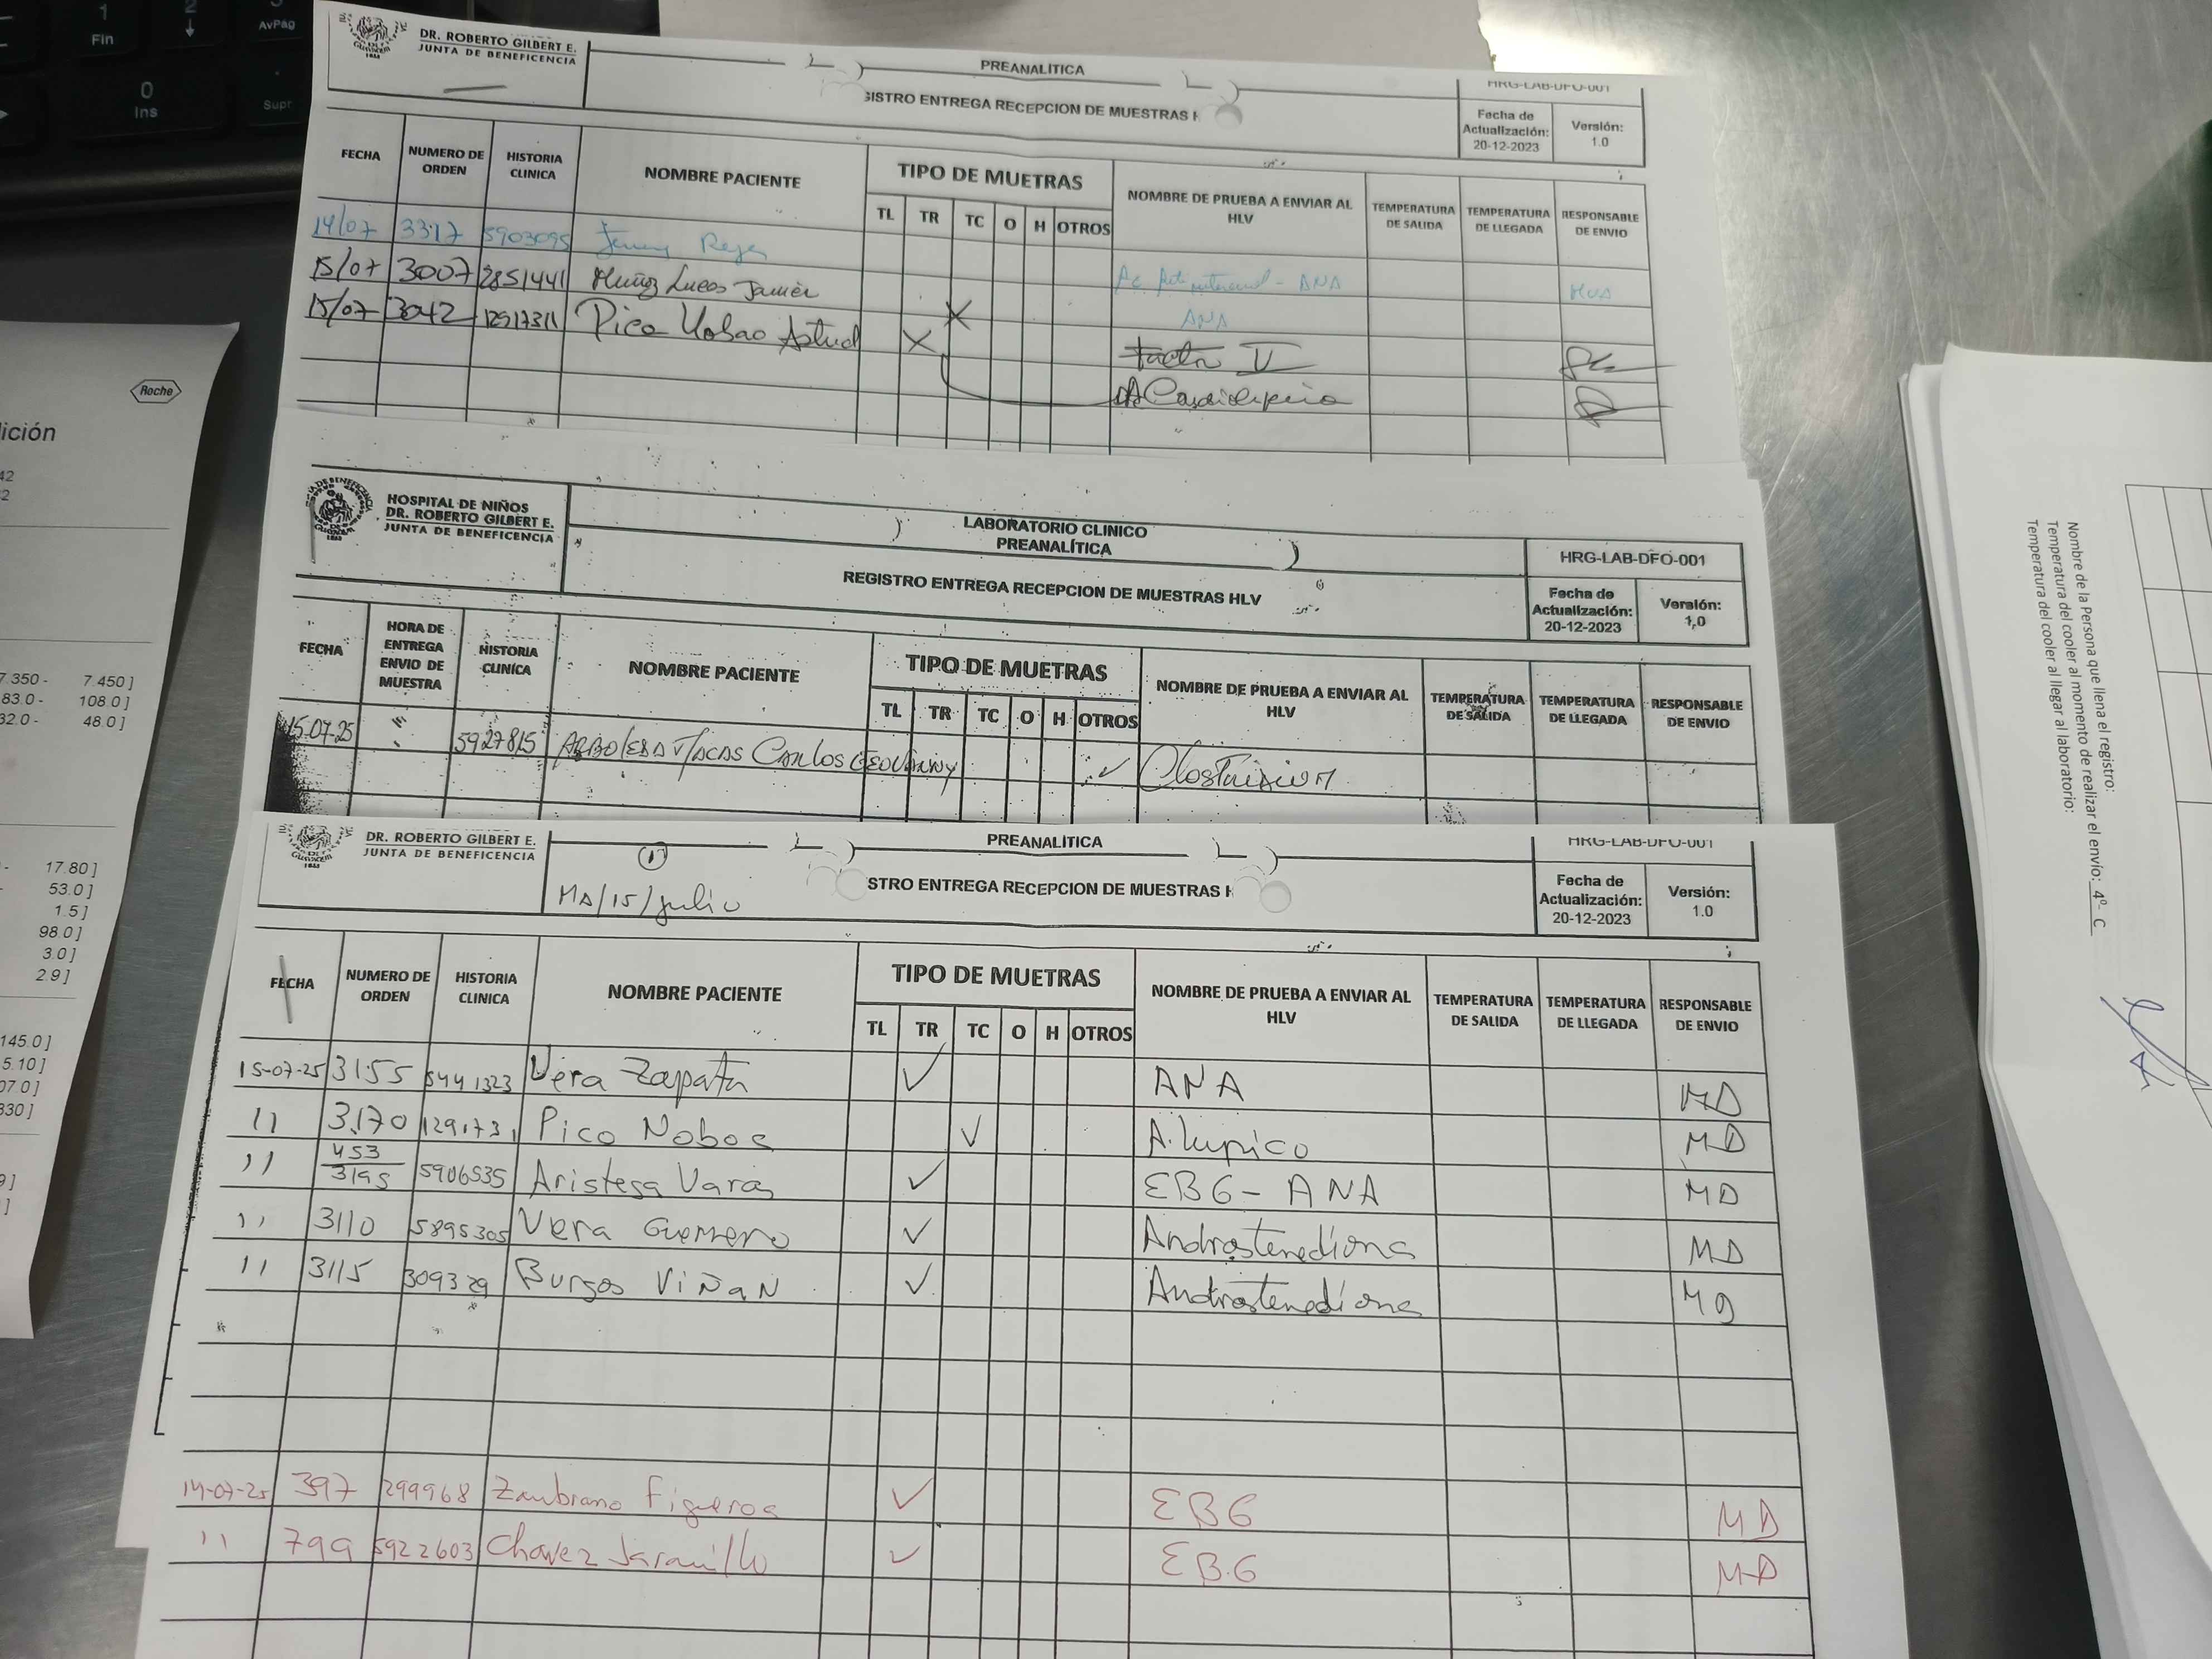 1
Fin
2
↓
AvPág
0
Ins
Supr
DR. ROBERTO GILBERT E.
JUNTA DE BENEFICENCIA
PREANALÍTICA
GISTRO ENTREGA RECEPCION DE MUESTRAS H
HRG-LAB-DFO-001
Fecha de Actualización: 20-12-2023
Versión: 1.0
FECHA NUMERO DE ORDEN HISTORIA CLINICA NOMBRE PACIENTE TIPO DE MUETRAS NOMBRE DE PRUEBA A ENVIAR AL HLV TEMPERATURA DE SALIDA TEMPERATURA DE LLEGADA RESPONSABLE DE ENVIO
TL TR TC O H OTROS
14/07 3317 5903095 Reyes ANA
15/07 3007 2851441 Muñoz Lucas Javier ANA
15/07 3042 1291731 Pico
Factor V
HOSPITAL DE NIÑOS
DR. ROBERTO GILBERT E.
JUNTA DE BENEFICENCIA
LABORATORIO CLINICO
PREANALÍTICA
REGISTRO ENTREGA RECEPCION DE MUESTRAS HLV
HRG-LAB-DFO-001
Fecha de Actualización: 20-12-2023
Versión: 1,0
FECHA HORA DE ENTREGA ENVIO DE MUESTRA HISTORIA CLINICA NOMBRE PACIENTE TIPO DE MUETRAS NOMBRE DE PRUEBA A ENVIAR AL HLV TEMPERATURA DE SALIDA TEMPERATURA DE LLEGADA RESPONSABLE DE ENVIO
TL TR TC O H OTROS
15-07-25 " 5927815 Carlos GEOVANNY ✓ Clostridium
DR. ROBERTO GILBERT E.
JUNTA DE BENEFICENCIA
1
MD/15/julio
PREANALÍTICA
STRO ENTREGA RECEPCION DE MUESTRAS H
HRG-LAB-DFO-001
Fecha de Actualización: 20-12-2023
Versión: 1.0
FECHA NUMERO DE ORDEN HISTORIA CLINICA NOMBRE PACIENTE TIPO DE MUETRAS NOMBRE DE PRUEBA A ENVIAR AL HLV TEMPERATURA DE SALIDA TEMPERATURA DE LLEGADA RESPONSABLE DE ENVIO
TL TR TC O H OTROS
15-07-25 3155 5441323 Vera Zapata ✓ ANA MD
" 3170 129173 Pico Noboa ✓ A. lupico MD
" 453/3195 5906535 Aristega Varas ✓ EB6 - ANA MD
" 3110 5895305 Vera Guerrero ✓ Androstenediona MD
" 3115 309329 Burgos ViñaN ✓ Androstenediona MD
14-07-25 397 299968 Zambrano Figueroa ✓ EB6 MD
" 799 5922603 Chavez Jaramillo ✓ EB.6 MD
Roche
ición
42
2
7.350 - 7.450 ]
83.0 - 108.0 ]
32.0 - 48.0 ]
- 17.80 ]
53.0 ]
1.5 ]
98.0 ]
3.0 ]
2.9 ]
145.0 ]
5.10 ]
07.0 ]
330 ]
Nombre de la Persona que llena el registro:
Temperatura del cooler al momento de realizar el envío: 4°- C
Temperatura del cooler al llegar al laboratorio: